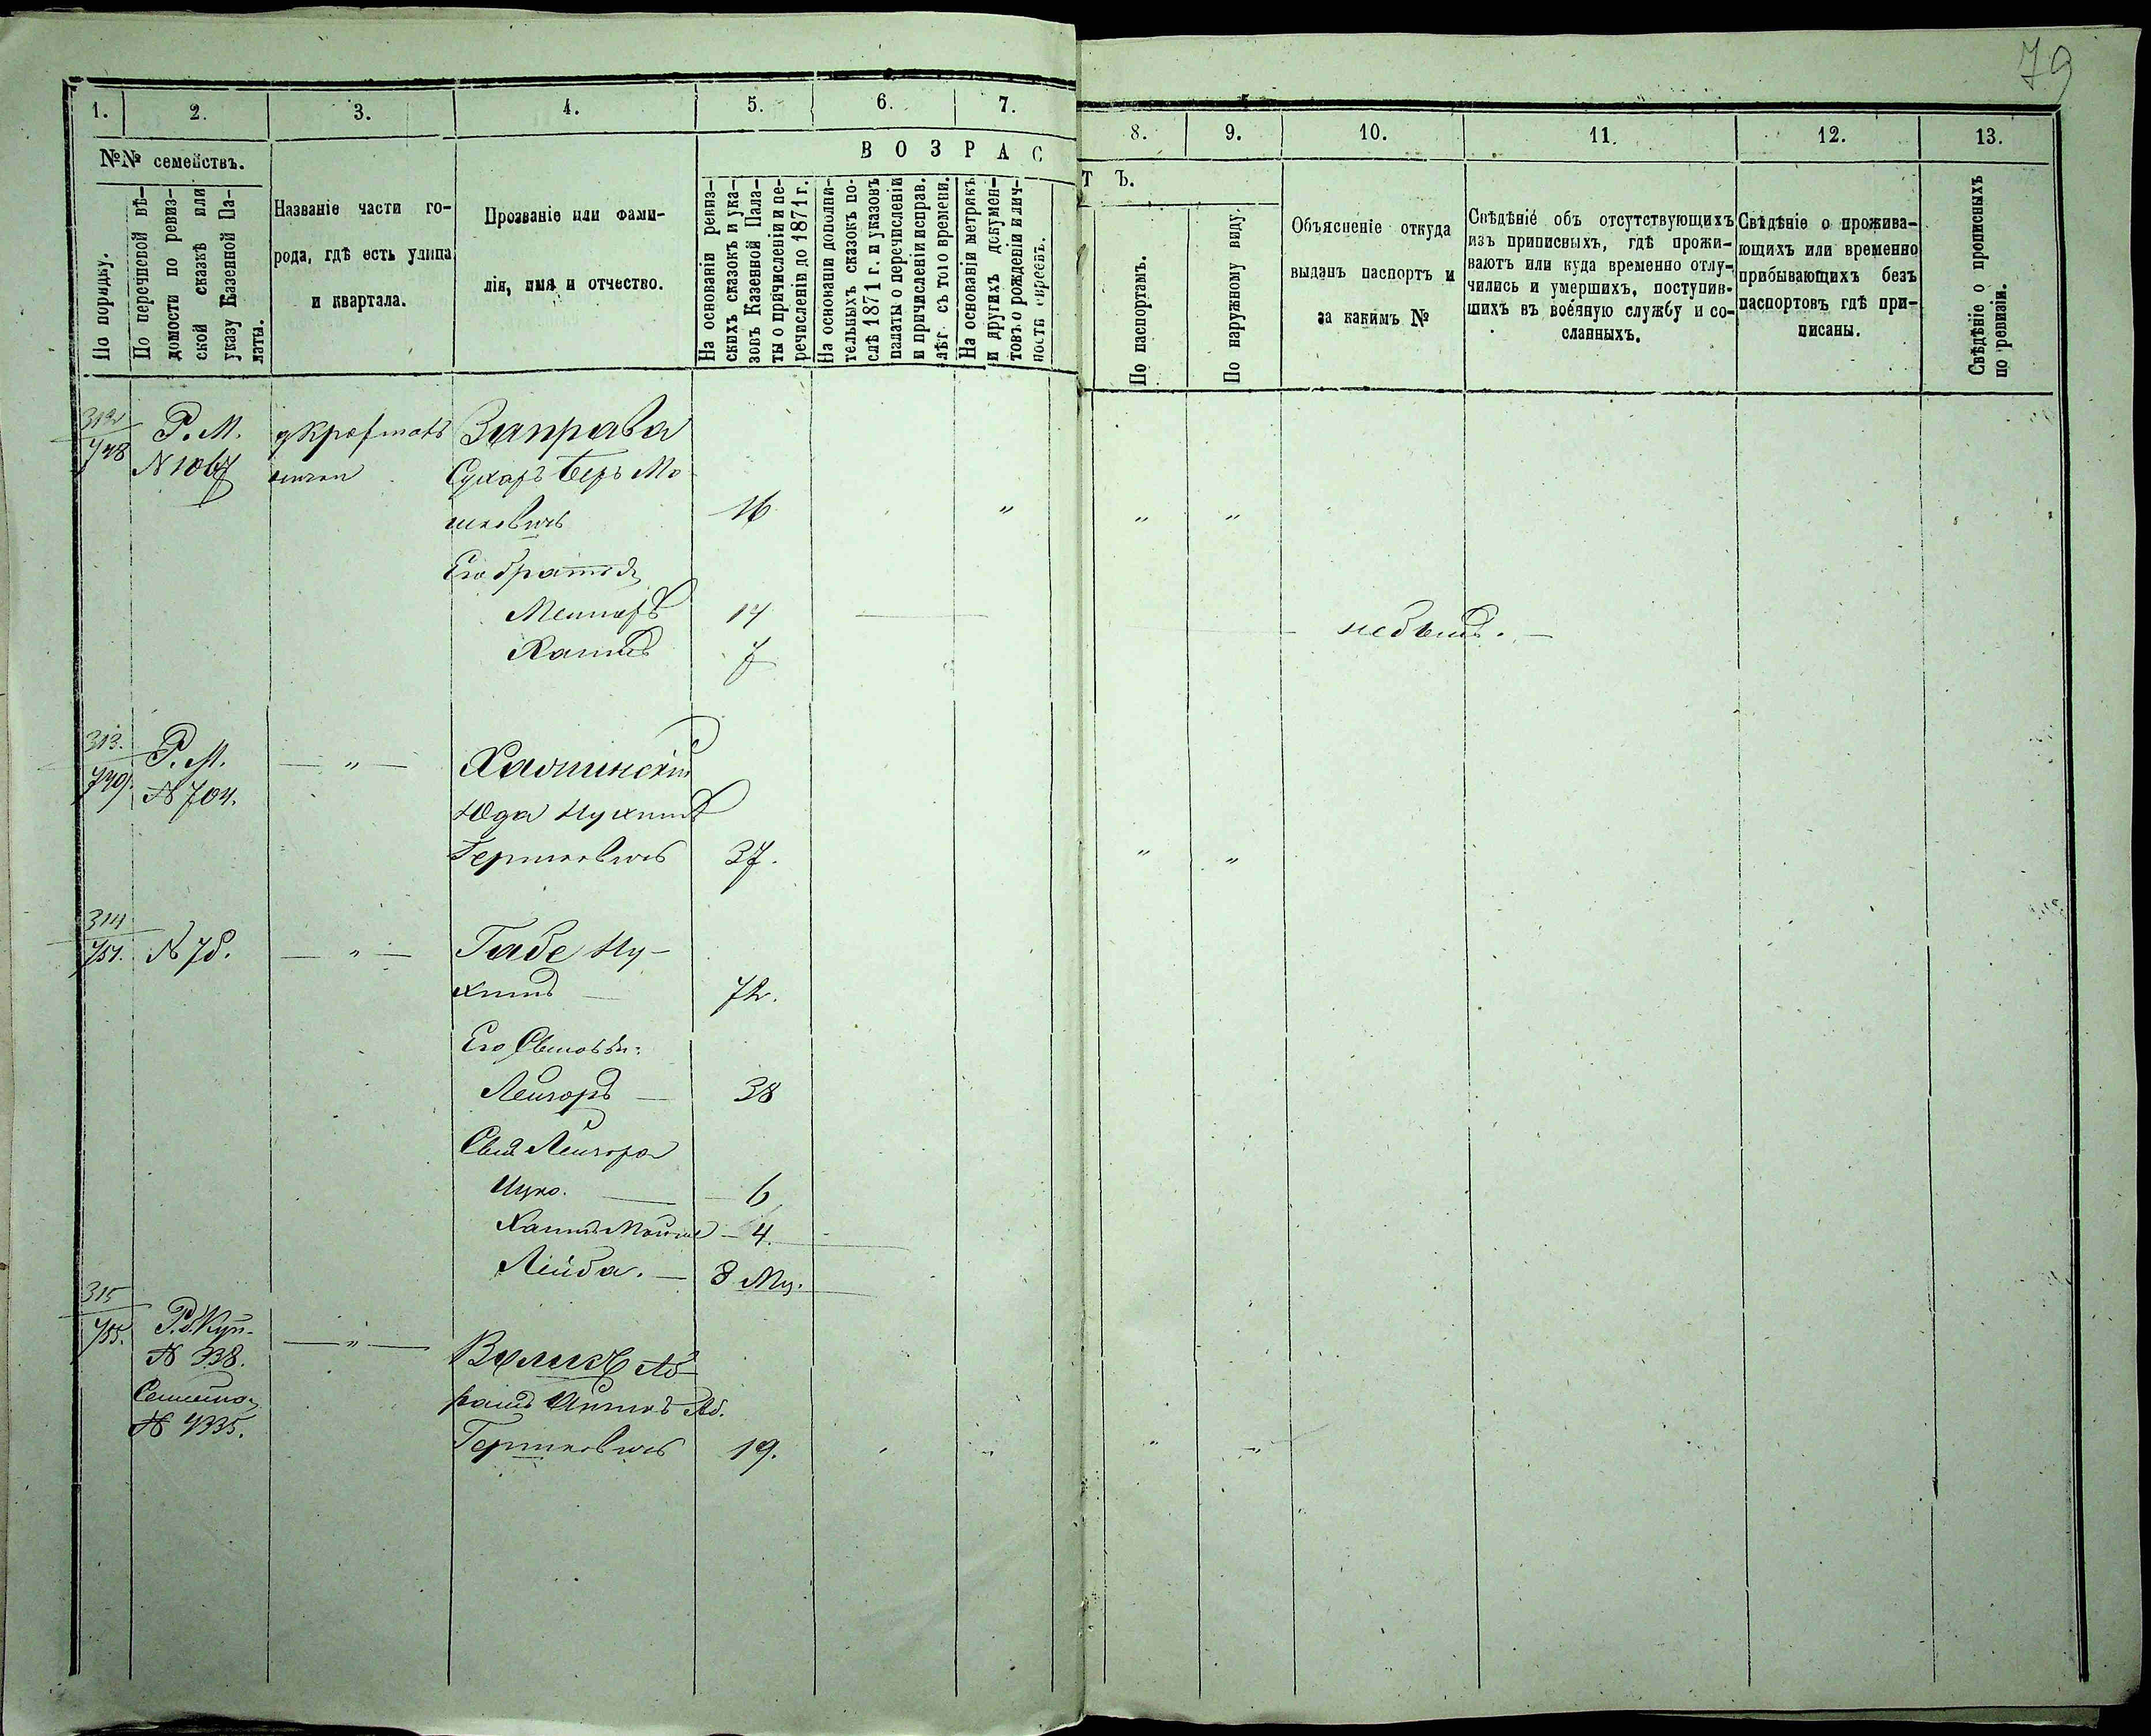 79
1. 2. 3. 4. 5. 6. 7. 8. 9. 10. 11. 12. 13.
№№ семействъ.
По порядку.
По перечневой вѣ-
домости по ревиз-
ской сказкѣ или
указу Казенной Па-
латы.
Названіе части го-
рода, гдѣ есть улица
и квартала.
Прозваніе или фами-
лія, имя и отчество.
ВОЗРАСТЪ.
На основаніи ревиз-
скихъ сказокъ и ука-
зовъ Казенной Пала-
ты о причисленіи и пе-
речисленіи до 1871 г.
На основаніи дополни-
тельныхъ сказокъ по-
слѣ 1871 г. и указовъ
палаты о перечисленіи
и причисленіи исправ.
лѣт. съ того времени.
На основаніи метрикъ
и другихъ докумен-
товъ о рожденіи и лич-
ности евреевъ.
По паспортамъ.
По наружному виду.
Объясненіе откуда
выданъ паспортъ и
за какимъ №
Свѣдѣніе объ отсутствующихъ
изъ приписныхъ, гдѣ прожи-
ваютъ или куда временно отлу-
чились и умершихъ, поступив-
шихъ въ военную службу и со-
сланныхъ.
Свѣдѣніе о прожива-
ющихъ или временно
прибывающихъ безъ
паспортовъ гдѣ при-
писаны.
Свѣдѣніе о прописныхъ
по ревизіи.
312
748
Р. М.
N 1067
Заправа
Сухаръ Беръ Мо
шковичъ 16 " " "
Его братья
14
Хаимъ 7
313.
749.
Р. М.
N 704.
— " —
Юда Нухимъ
Гершковичъ 37. " "
314
751.
N 78.
— " —
Габе Ну-
химъ — 72.
Его Сыновья:
Лейзоръ — 38
Сын. Лейзора
6
Хаимъ Мойше — 4.
Лейба. — 8 м.
315
755.
Р. С. Куп.
N 338.
N 4335.
— " —
Аб-
рамъ Аб.
Гершковичъ 19. " " "